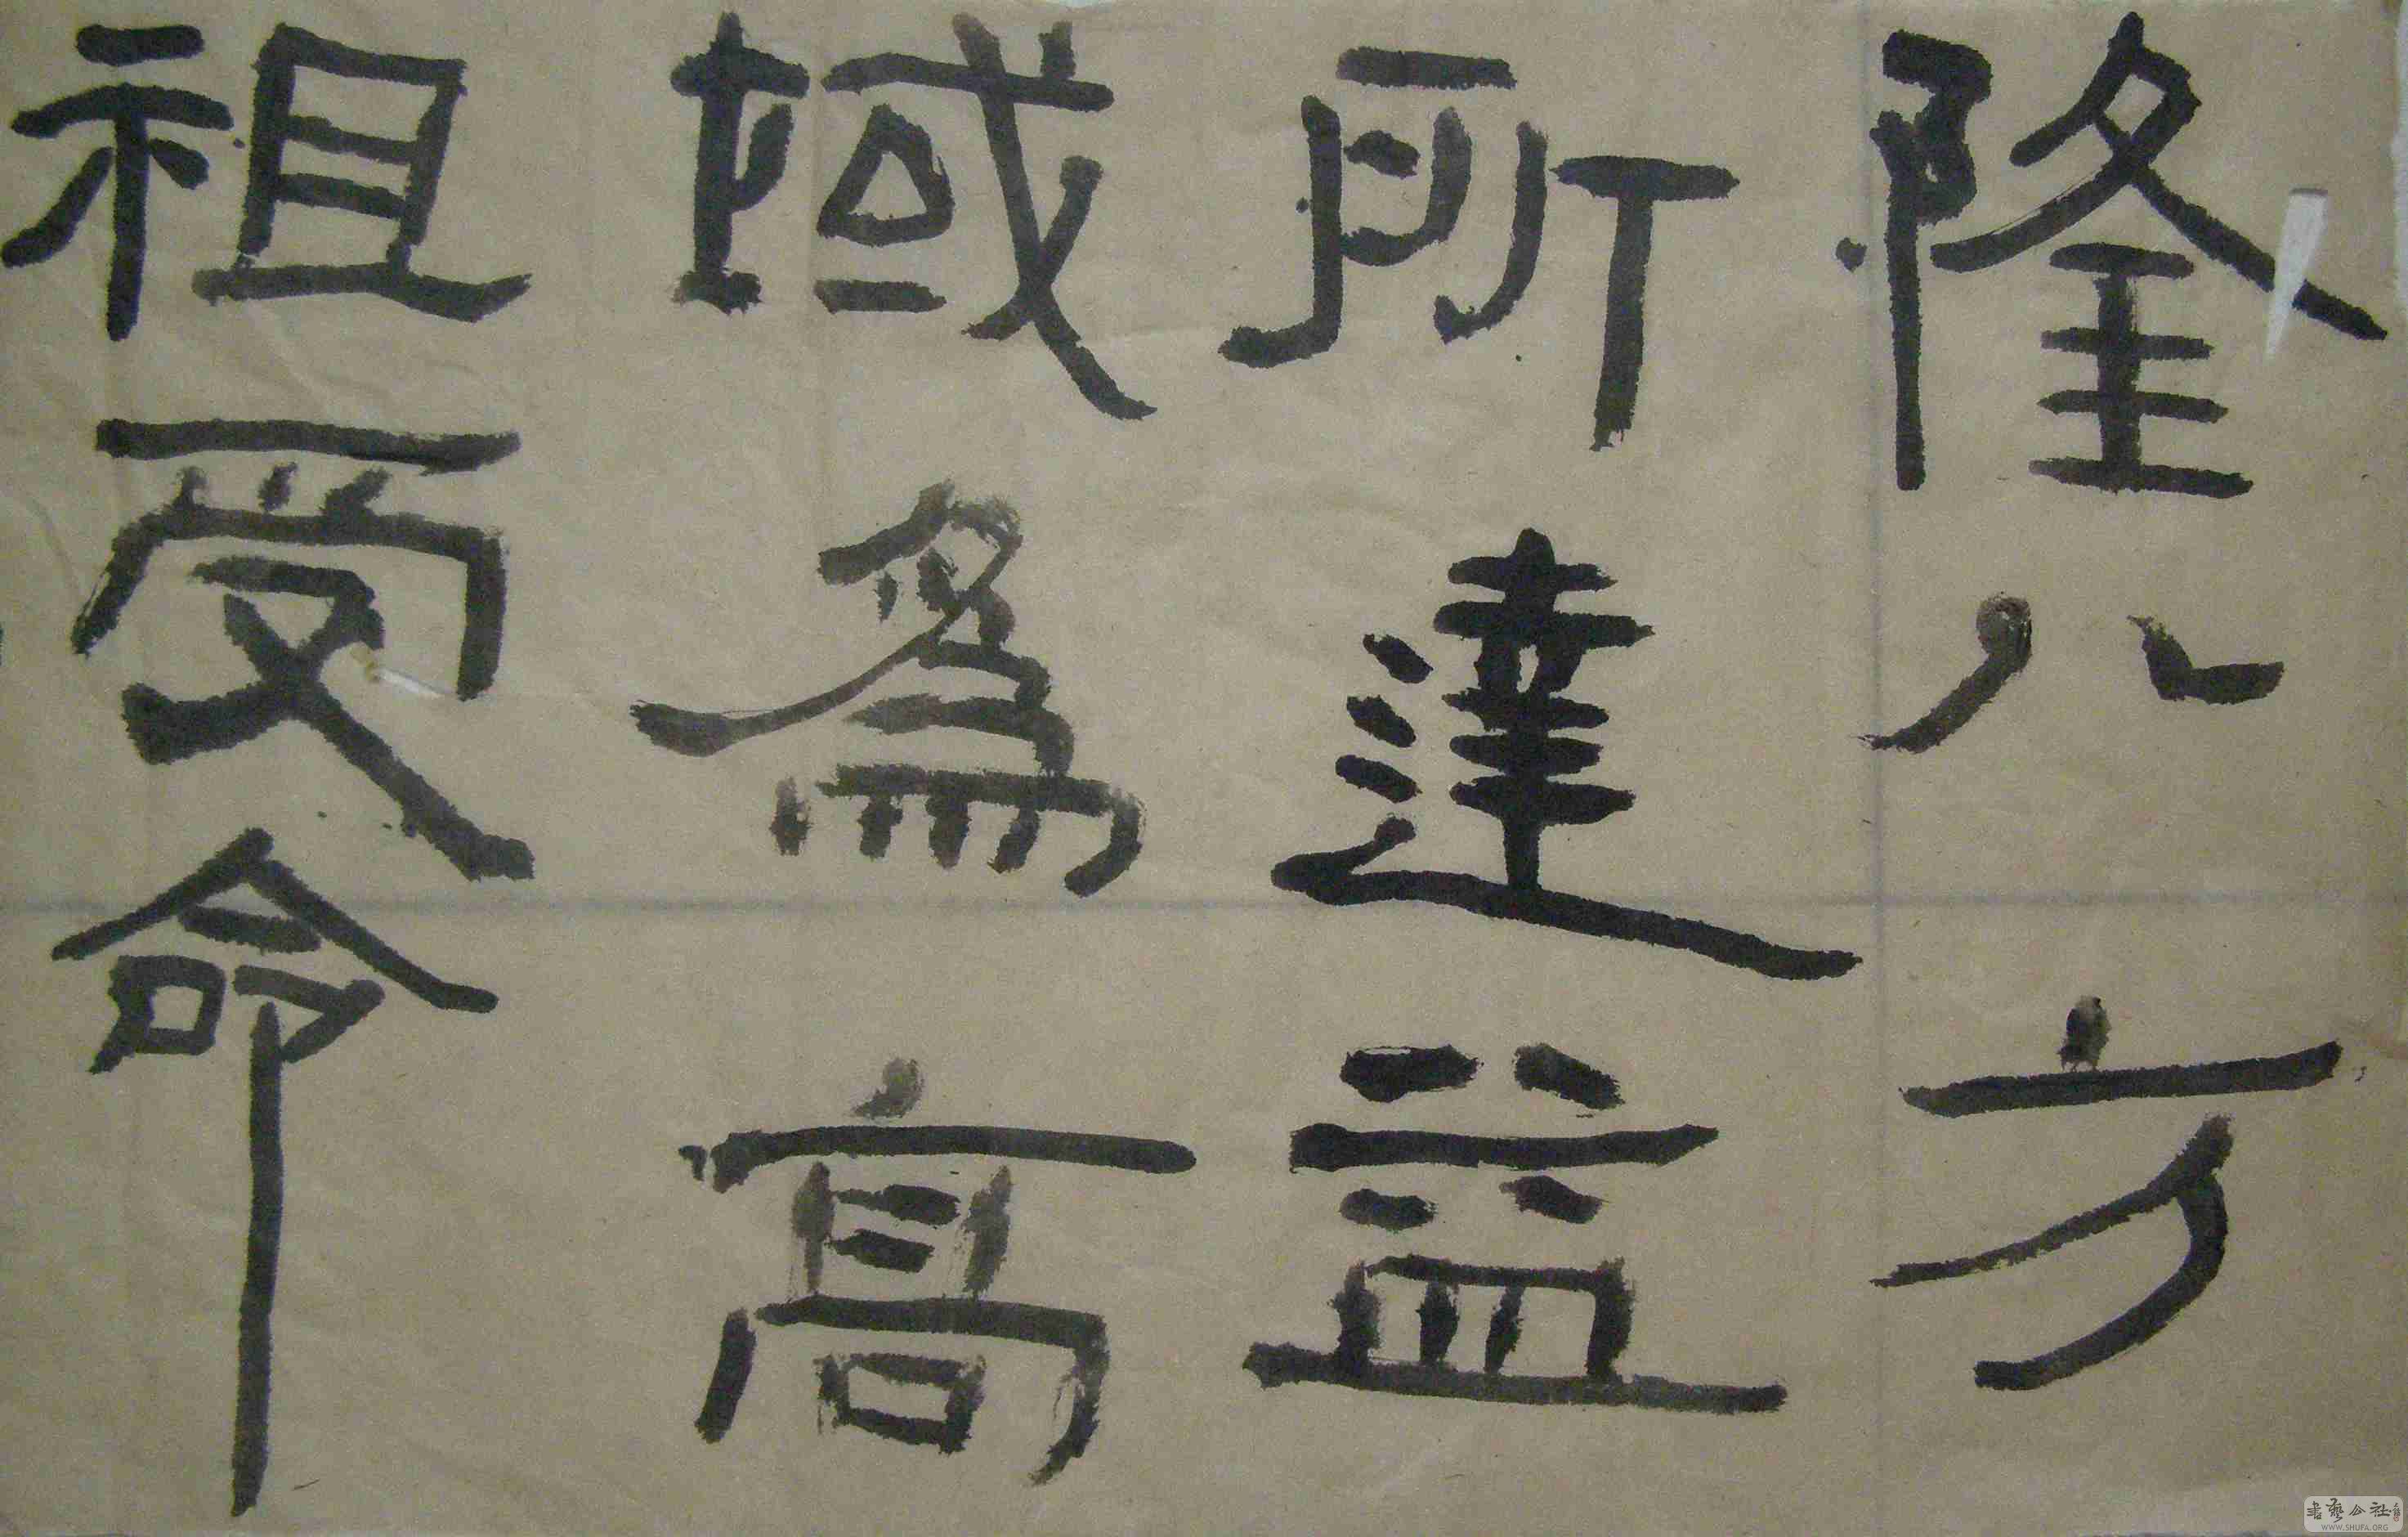 隆八方
所達益
域為高
祖受命
書藝公社
WWW.SHUFA.ORG